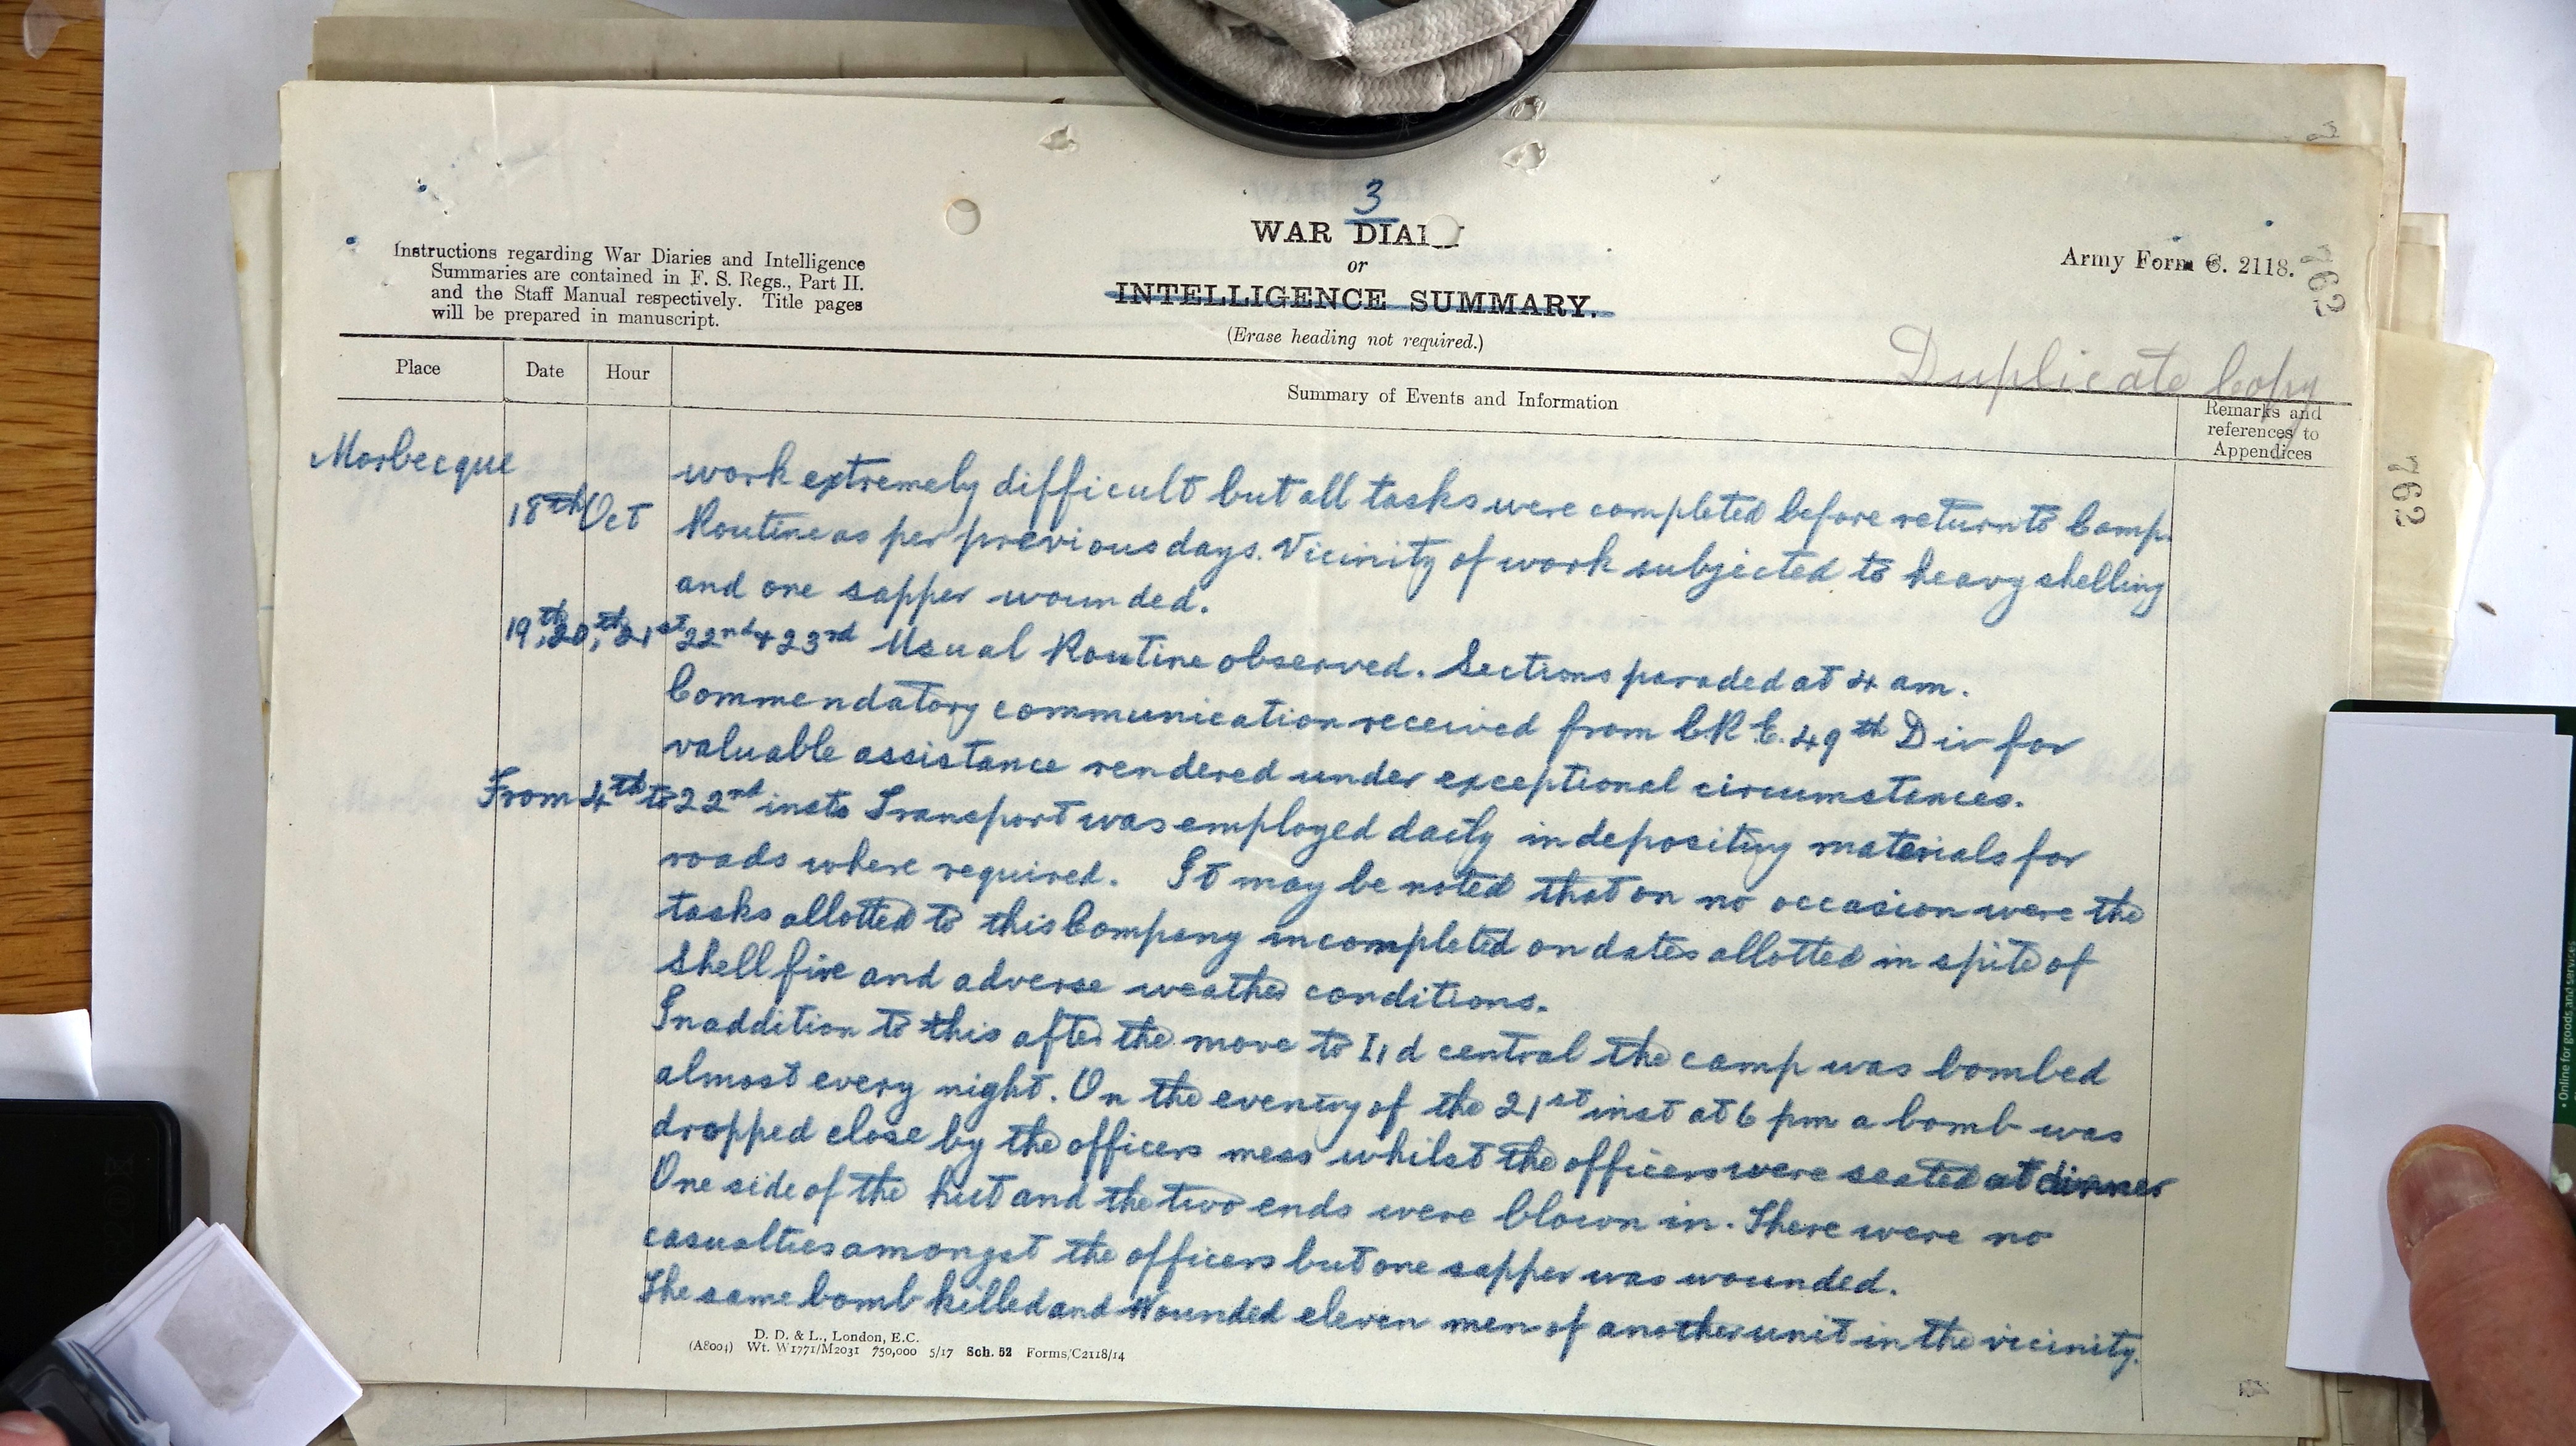 3
WAR DIA
or
INTELLIGENCE SUMMARY.
(Erase heading not required.)
Instructions regarding War Diaries and Intelligence
Summaries are contained in F. S. Regs., Part II.
and the Staff Manual respectively. Title pages
will be prepared in manuscript.
Army Form C. 2118.
762
Duplicate Copy
Place Date Hour Summary of Events and Information Remarks and
references to
Appendices
762
Morbecque work extremely difficult but all tasks were completed before return to Camp.
18th Oct Routine as per previous days. Vicinity of work subjected to heavy shelling
and one sapper wounded.
19th, 20th, 21st 22nd & 23rd Usual Routine observed. Sections paraded at 4 am.
Commendatory communication received from C.R.E. 49th Div for
valuable assistance rendered under exceptional circumstances.
From 4th to 22nd insts Transport was employed daily in depositing materials for
roads where required. It may be noted that on no occasion were the
tasks allotted to this Company incompleted on dates allotted in spite of
Shell fire and adverse weather conditions.
In addition to this after the move to I,1d central the camp was bombed
almost every night. On the evening of the 21st inst at 6 pm a bomb was
dropped close by the officers mess whilst the officers were seated at dinner
One side of the hut and the two ends were blown in. There were no
casualties amongst the officers but one sapper was wounded.
The same bomb killed and Wounded eleven men of another unit in the vicinity.
D. D. & L., London, E.C.
(A8004) Wt. W1771/M2031 750,000 5/17 Sch. 52 Forms/C2118/14
• Online for goods and services